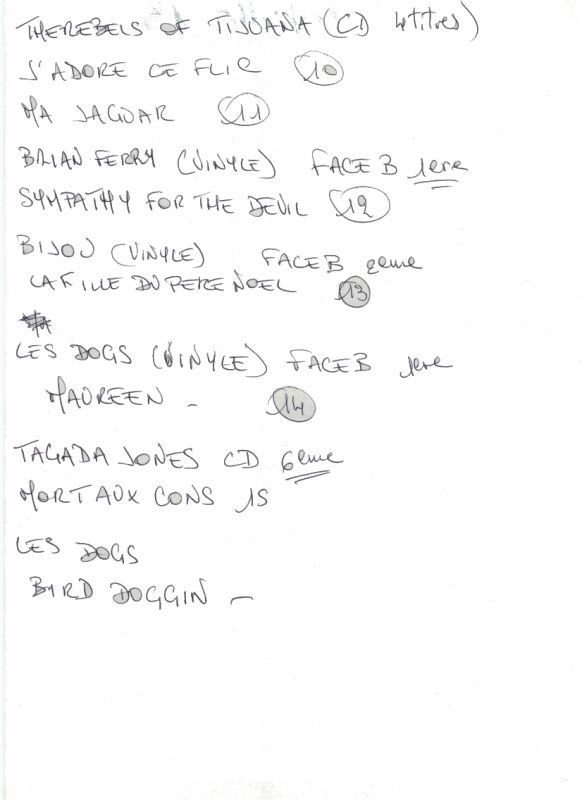 THE REBELS OF TIJUANA (CD 4 titres)
J'ADORE CE FLIC 10
MA JAGUAR 11
BRIAN FERRY (VINYLE) FACE B 1ere
SYMPATHY FOR THE DEVIL 12
BIJOU (VINYLE) FACE B 2eme
LA FILLE DU PERE NOEL 13
LES DOGS (VINYLE) FACE B 1ere
MAUREEN - 14
TAGADA JONES CD 6eme
MORT AUX CONS 15
LES DOGS
BYRD DOGGIN -